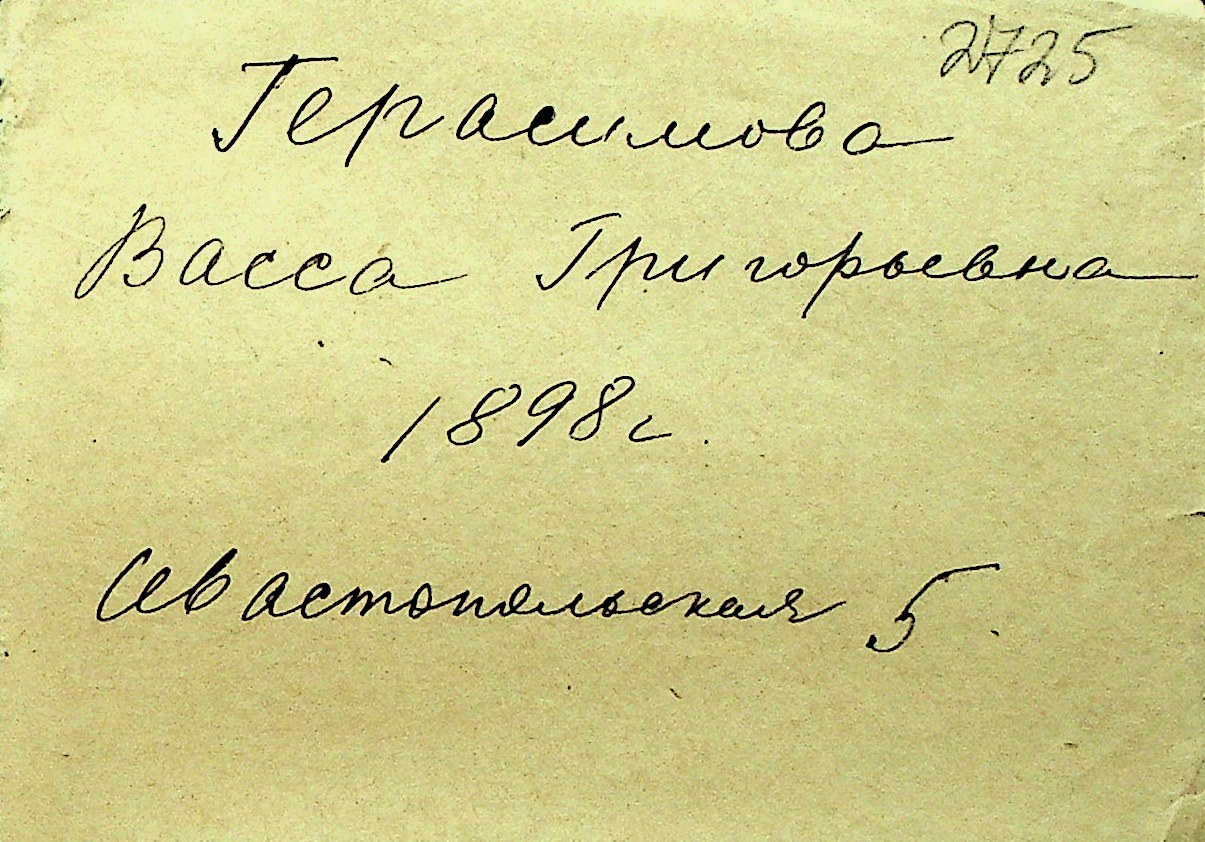 2725
Герасимова
Васса Григорьевна
1898г.
Севастопольская 5.